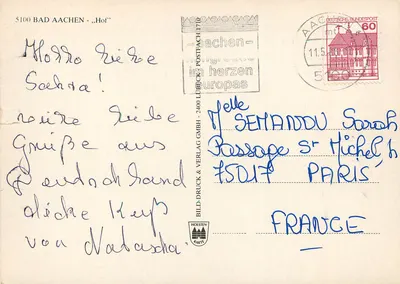 5100 BAD AACHEN - „Hof"
Hallo liebe
Sahra!
viele liebe
Grüße aus
Deutschland
dicke Kuß
von Natascha
BILD-DRUCK & VERLAG GMBH · 2400 LÜBECK · POSTFACH
aachen
im herzen
europas
AACHEN
11.5.
DEUTSCHE BUNDESPOST
60
Melle
SEMANOU Sarah
Passage St Michel
75017 PARIS
FRANCE